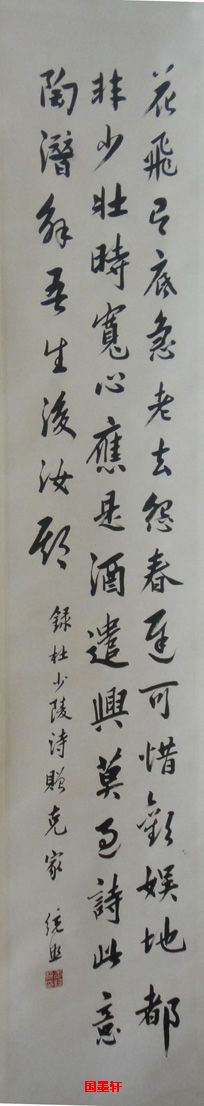 花飛有底急老去愿春遲可惜歡娛地都
非少壮時寬心應是酒遣興莫過詩此意
陶潛解吾生後汝期
録杜少陵詩贈克家 統照
国墨轩